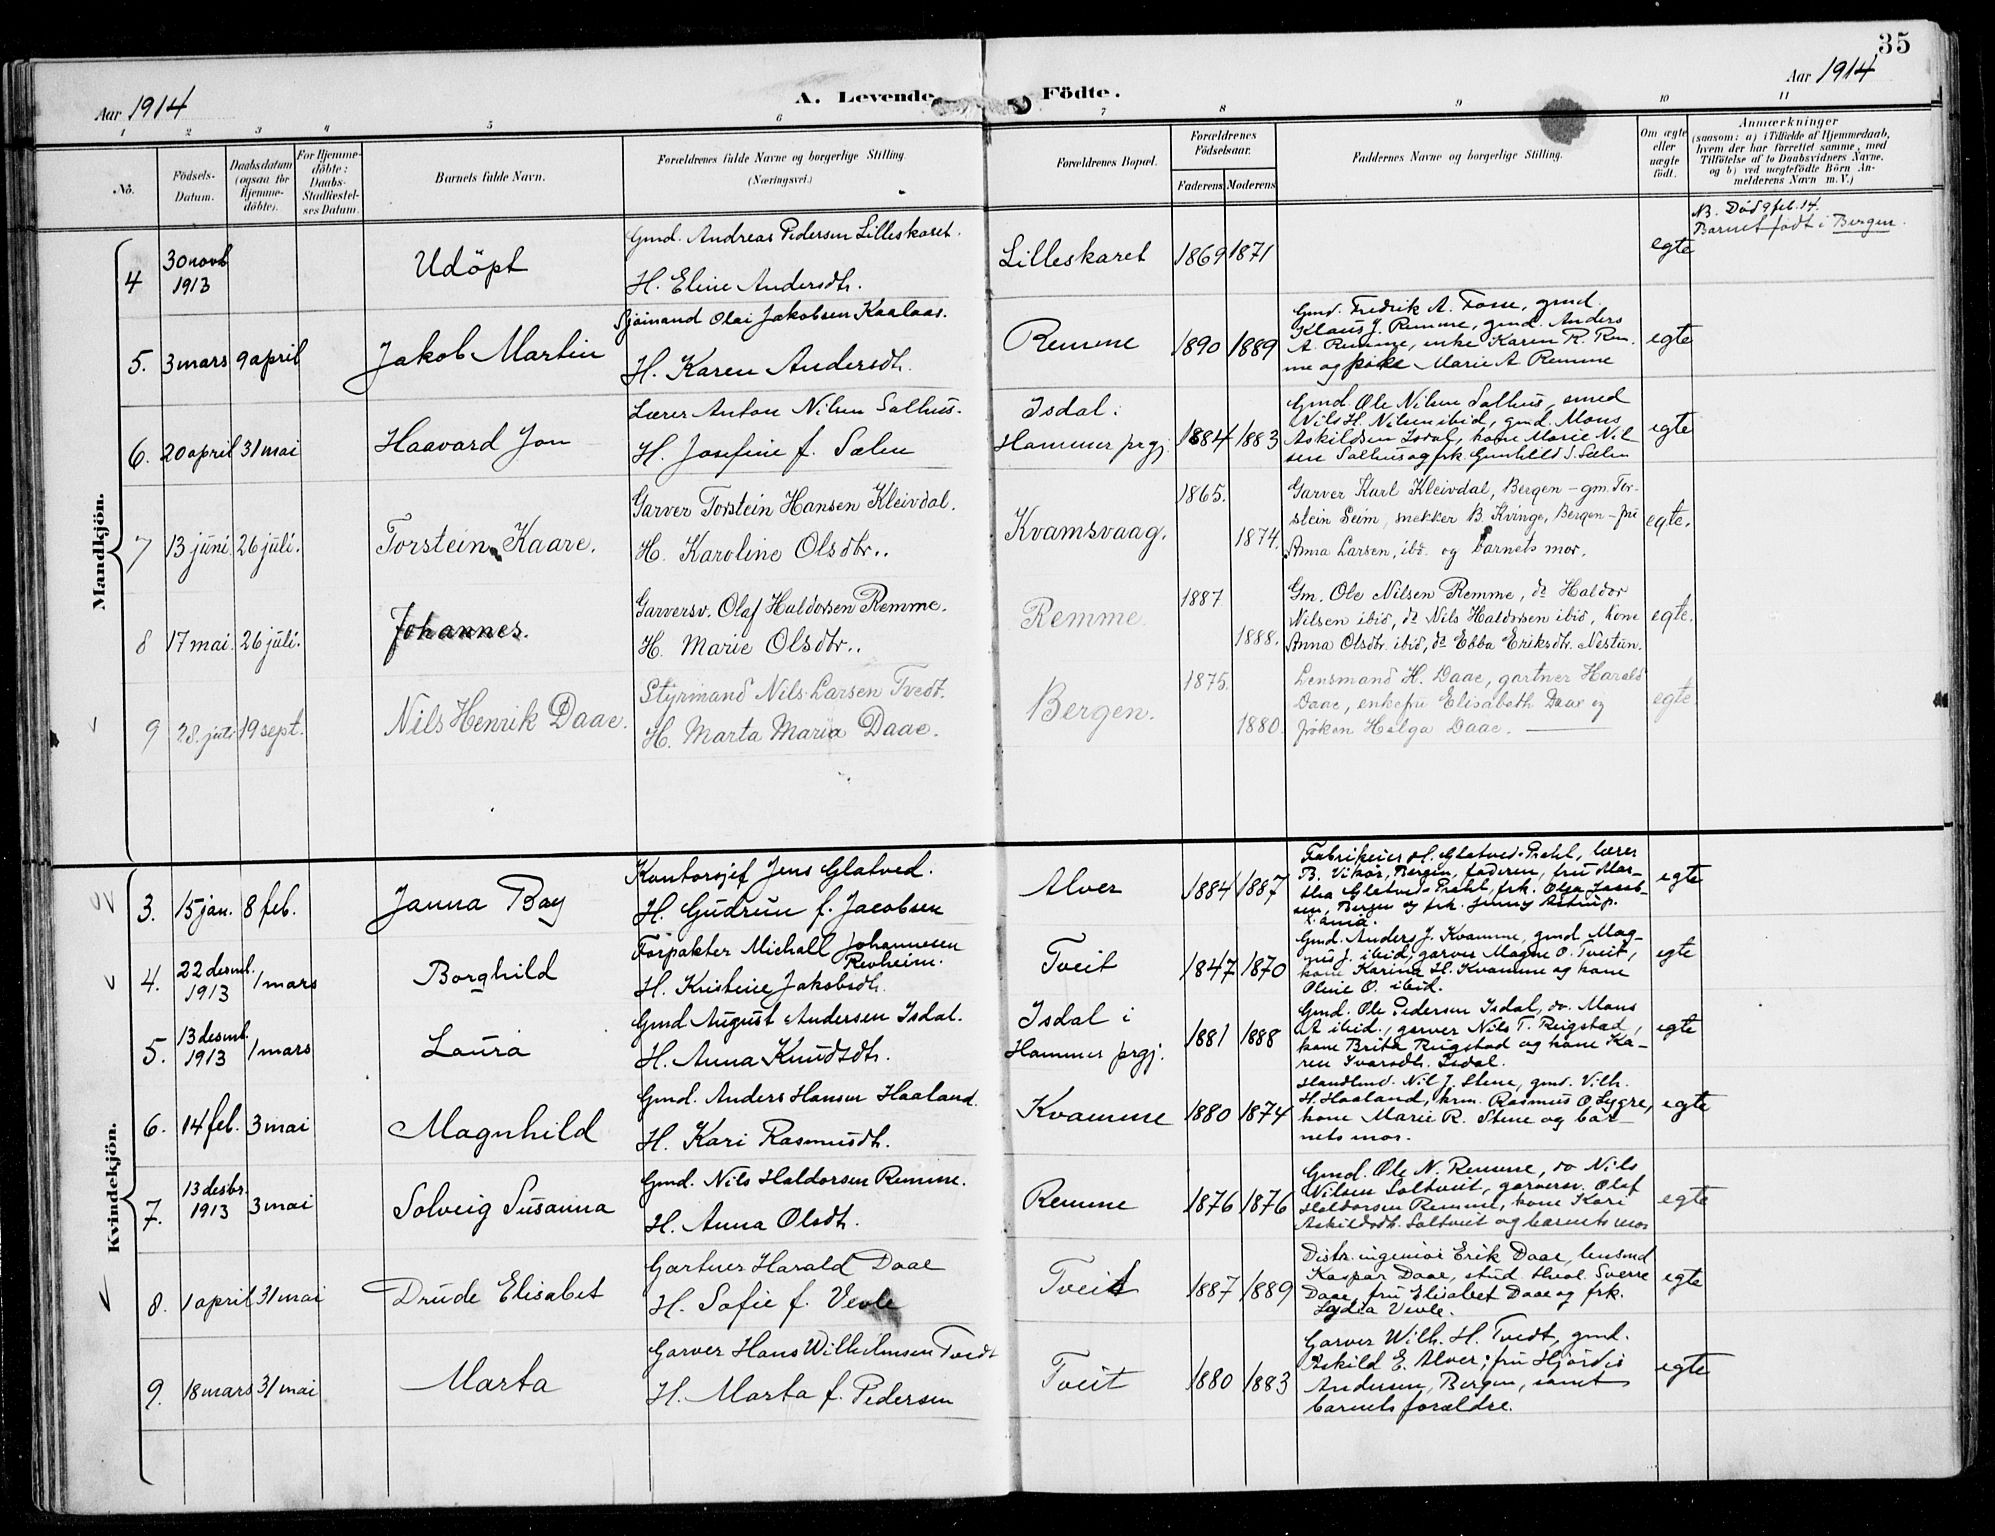 35
Aar 1914
A. Levende Födte.
Aar 1914
1 2 3 4 5 6 7 8 9 10 11
No.
Födsels-
Datum.
Daabsdatum
(ogsaa for
Hjemme-
döbte).
For Hjemme-
döbte:
Daabs-
Stadfæstel-
ses Datum.
Barnets fulde Navn.
Forældrenes fulde Navne og borgerlige Stilling.
(Næringsvei.)
Forældrenes Bopæl.
Forældrenes
Födselsaar.
Faderens Moderens
Faddernes Navne og borgerlige Stilling.
Om ægte
eller
uægte
födt.
Anmærkninger
(saasom: a) i Tilfælde af Hjemmedaab,
hvem der har forrettet samme, med
Tilföielse af to Daabsvidners Navne,
og b) ved uægtefödte Börn An-
melderens Navn m. V.)
Mandkjön.
4
30 novb
1913
Udöpt
Gmd. Andreas Pedersen Lilleskaret.
H. Eline Andersdtr.
Lilleskaret
1869 1871
egte
NB. Död 9 feb. 14.
Barnet födt i Bergen.
5. 3 mars 9 april
Jakob Martin
Sjömand Olai Jakobsen Kaalaas.
H. Karen Andersdtr.
Remme
1890 1889
Gmd. Fredrik A. Fosse, gmd.
Klaus J. Remme, gmd. Anders
A. Remme, enke Karen R. Rem-
me og pike Marie A Remme
egte
6. 20 april 31 mai
Haavard Jon
Lærer Anton Nilsen Salhus.
H. Josefine f. Sælen
Isdal i
Hammer prgj.
1884 1883
Gmd. Ole Nilsen Salhus, smed
Nils H. Nilsen ibid, gmd. Mons
Askildsen Isdal, kone Marie Nil
sen Salhus og frk. Gunhild S. Sælen
egte
7 13 juni 26 juli.
Torstein Kaare.
Garver Torstein Hansen Kleivdal.
H. Karoline Olsdtr.
Kvamsvaag.
1865.
1874.
Garver Karl Kleivdal, Bergen - gm. Tor-
stein Seim, snekker B. Kvinge, Bergen - fru
Anna Larsen, ibd. og barnets mor.
egte.
8 17 mai. 26 juli.
Johannes.
Garversv. Olaf Haldorsen Remme.
H. Marie Olsdtr.
Remme.
1887
1888.
Gm. Ole Nilsen Remme, do Haldor
Nilsen ibid, do Nils Haldorsen ibid, kone
Anna Olsdtr. ibid, do Ebba Eriksdtr. Nestun.
egte.
9 28. juli 19 sept.
Nils Henrik Daae.
Styrmand Nils Larsen Tvedt.
H. Marta Maria Daae.
Bergen.
1875.
1880.
Lensmand H. Daae, gartner Harald
Daae, enkefru Elisabeth Daae og
fröken Helga Daae.
egte
Kvindekjön.
3. 15 jan. 8 feb.
Janna Bay
Kontorsjef Jens Glatved.
H. Gudrun f. Jacobsen
Alver
1884 1887
Fabrikeier H. Glatved-Prahl, lærer
B. Vikör, Bergen, faderen, fru Mar-
tha Glatved-Prahl, frk. Olga Jacob-
sen, Bergen og frk. Jenny Astrup.
X.ania.
egte
4. 22 desmb.
1913
1 mars
Borghild
Forpakter Michall Johannesen
Revheim.
H. Kristine Jakobsdtr.
Tveit
1847 1870
Gmd. Anders J. Kvamme, gmd Mag-
nus J. ibid, garver Magne O. Tveit,
kone Karina H. Kvamme og kone
Oline O. ibid.
egte
5. 13 desmb.
1913
1 mars
Laura
Gmd August Andersen Isdal.
H. Anna Knudsdtr.
Isdal i
Hammer prgj.
1881 1888
Gmd. Ole Pedersen Isdal, do. Mons
A ibid., garver Nils T. Reigstad,
kone Brita Reigstad og kone Ka-
ren Ivarsdtr. Isdal.
egte
6. 14 feb. 3 mai
Magnhild
Gmd. Anders Hansen Haaland.
H. Kari Rasmusdtr.
Kvamme
1880 1874
Handlmd. Nil J. Stene, gmd. Vilh.
H. Haaland, krm. Rasmus O Lygre,
kone Marie R. Stene og bar-
nets mor.
egte
7. 13 desbr.
1913
3 mai
Solveig Susanna
Gmd. Nils Haldorsen Remme.
H. Anna Olsdtr.
Remme
1876 1876
Gmd. Ole N. Remme, do Nils
Nilsen Soltveit, garversv. Olaf
Haldorsen Remme, kone Kari
Askildsdtr. Soltveit og barnets mor
egte
8. 1 april 31 mai
Drude Elisabet
Gartner Harald Daae
H. Sofie f. Vevle
Tveit
1887 1889
Distr. ingeniör Erik Daae, lensmd
Kaspar Daae, stud theol. Sverre
Daae, fru Elisabet Daae og frk.
Lydia Vevle.
egte
9. 18 mars 31 mai
Marta
Garver Hans Wilhelmsen Tvedt
H. Marta f. Pedersen
Tveit
1880 1883
Garver Wilh. H. Tvedt, gmd.
Askild E. Alver, fru Hjördis
Andersen, Bergen, samt
barnets forældre.
egte